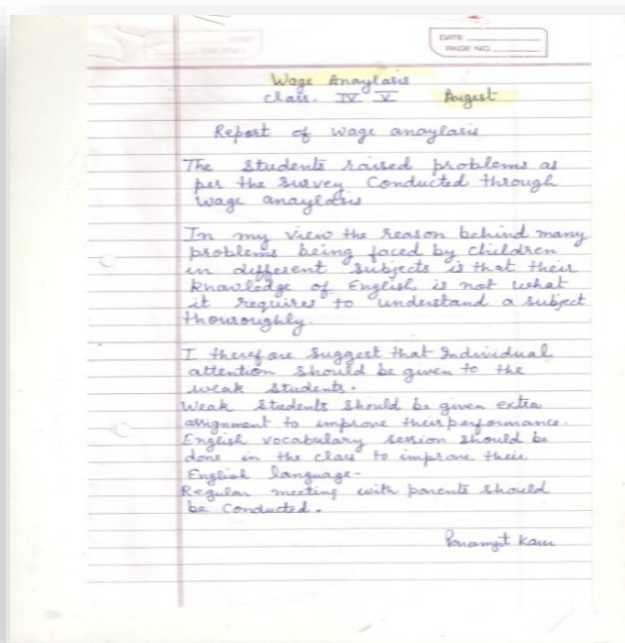 DATE
PAGE NO.
Wage Anaylasis
Class. IV V Augest
Report of wage anaylasis
The Students raised problems as
per the survey Conducted through
wage anaylasis
In my view the reason behind many
problems being faced by children
in different subjects is that their
knowledge of English is not what
it requires to understand a subject
thouroughly.
I therefore Suggest that Individual
attention should be given to the
weak students.
Weak Students should be given extra
assignment to improve their performance.
English vocabulary session should be
done in the class to improve their
English language-
Regular meeting with parents should
be Conducted.
Kaur